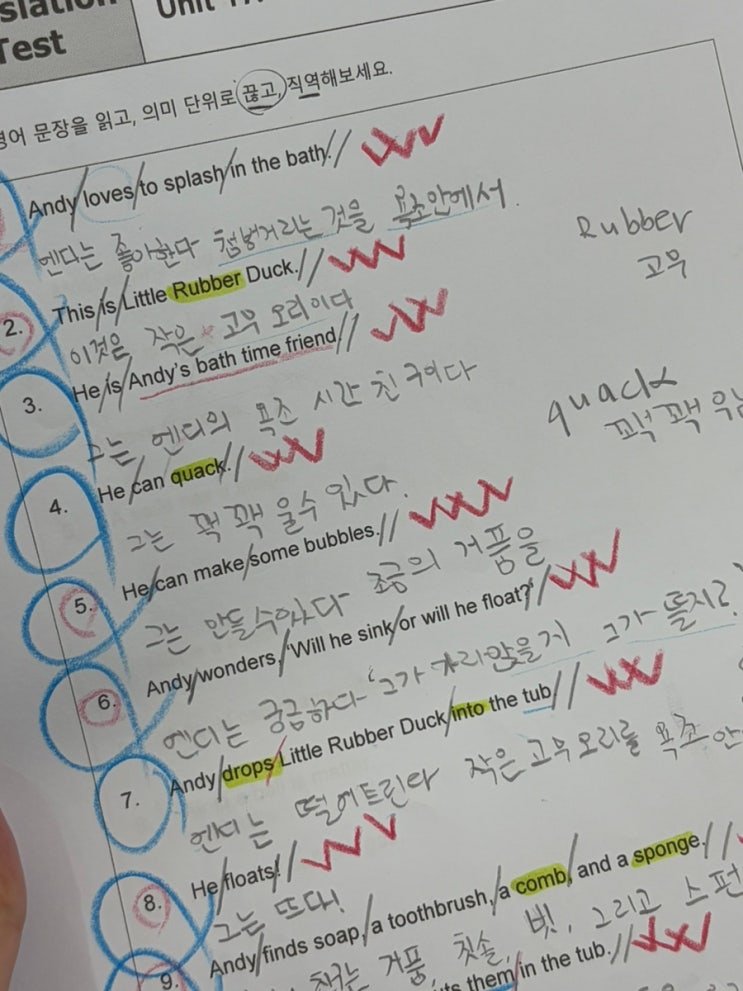 Test
영어 문장을 읽고, 의미 단위로 끊고, 직역해보세요.
Andy/loves/to splash/in the bath.//
엔디는 좋아한다 첨벙거리는 것을 욕조안에서.
Rubber
고무
2. This/is/Little Rubber Duck.//
이것은, 작은 고무 오리이다
3. He/is/Andy's bath time friend//
그는, 엔디의 욕조 시간 친구이다
quack
꽥꽥
4. He/can quack.//
그는 꽥꽥 울수 있다.
5. He/can make/some bubbles.//
그는 만들수있다 조금의 거품을
6. Andy/wonders,/'Will he sink/or will he float?'//
엔디는 궁금하다 '그가 가라앉을지 그가 뜰지?
7. Andy/drops/Little Rubber Duck/into the tub//
엔디는 떨어트린다 작은 고무오리를 욕조
8. He/floats!//
그는 뜨다!
9. Andy/finds soap,/a toothbrush,/a comb,/and a sponge.//
찾는 거품, 칫솔, 빗, 그리고
them/in the tub.//